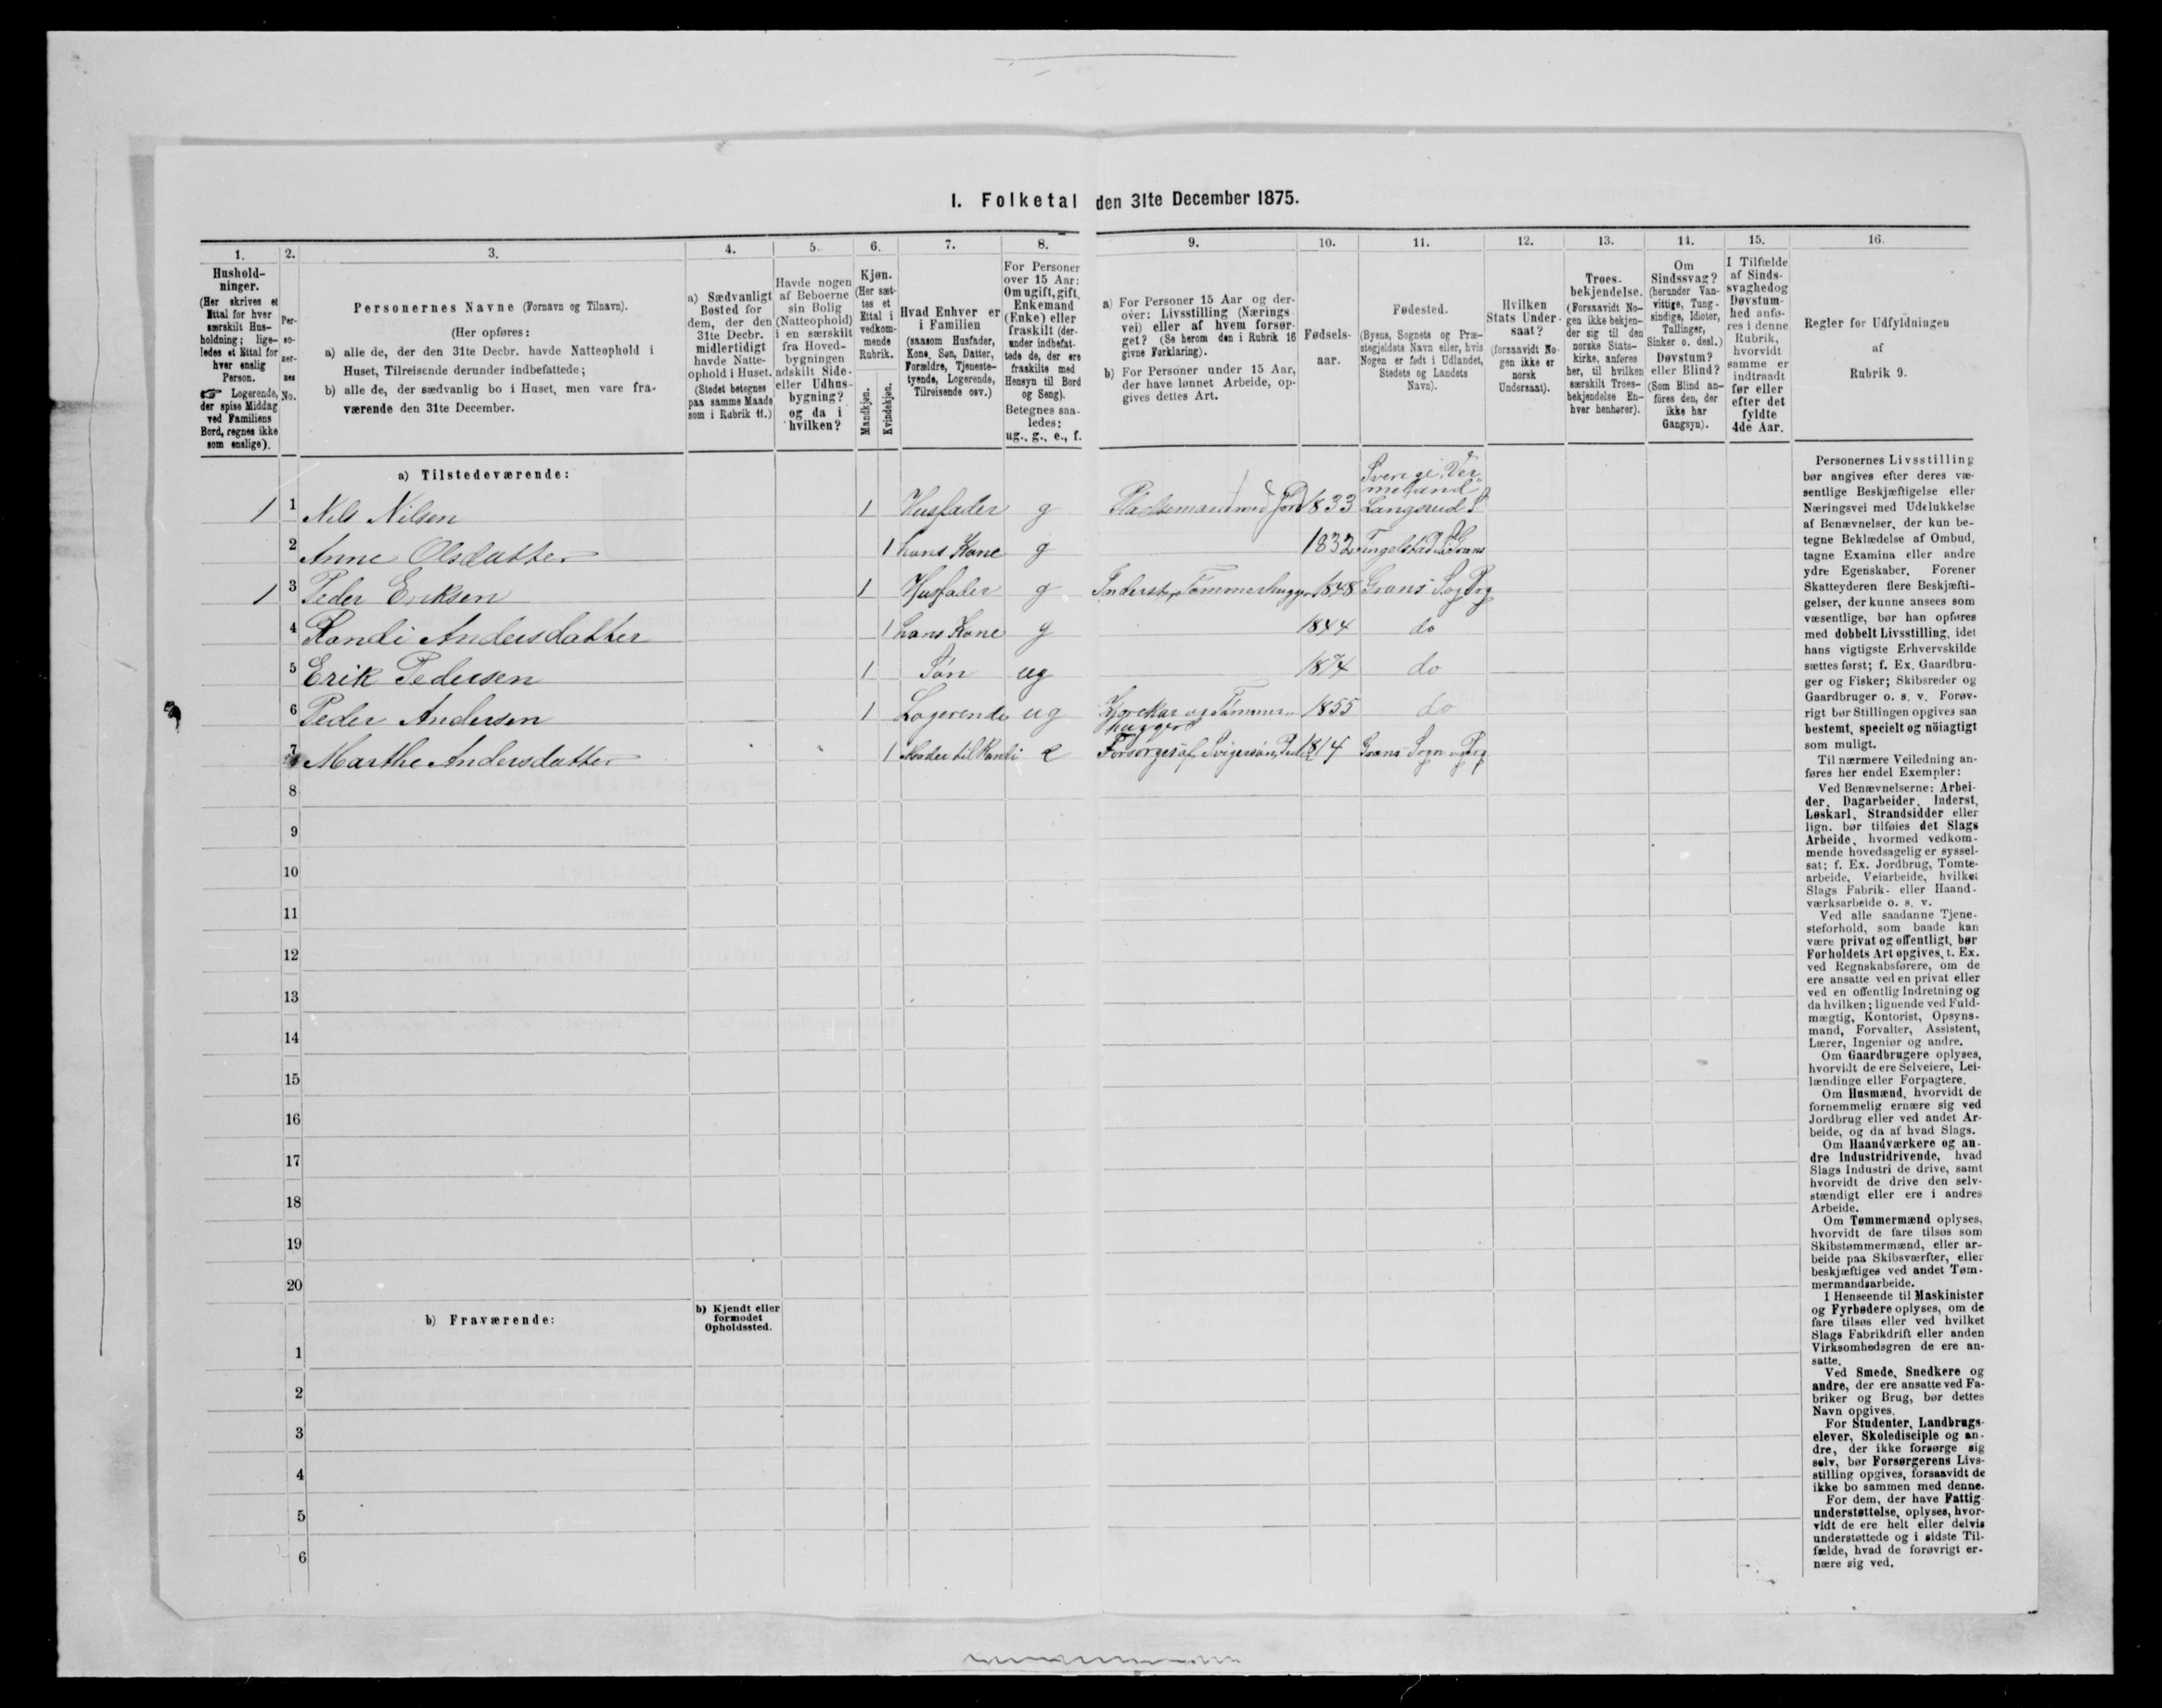 I. Folketal den 31te December 1875.
1. 2. 3. 4. 5. 6. 7. 8. 9. 10. 11. 12. 13. 14. 15. 16.
Hushold-
ninger.
(Her skrives et
Ettal for hver
særskilt Hus-
holdning; lige-
ledes et Ettal for
hver enslig
Person.
☞ Logerende,
der spise Middag
ved Familiens
Bord, regnes ikke
som enslige).
Per-
so-
ner-
nes
No.
Personernes Navne (Fornavn og Tilnavn).
(Her opføres:
a) alle de, der den 31te Decbr. havde Natteophold i
Huset, Tilreisende derunder indbefattede;
b) alle de, der sædvanlig bo i Huset, men vare fra-
værende den 31te December.
a) Sædvanligt
Bosted for
dem, der den
31te Decbr.
midlertidigt
havde Natte-
ophold i Huset.
(Stedet betegnes
paa samme Maade
som i Rubrik 11.)
Havde nogen
af Beboerne
sin Bolig
(Natteophold)
i en særskilt
fra Hoved-
bygningen
adskilt Side-
eller Udhus-
bygning?
og da i
hvilken?
Kjøn.
(Her sæt-
tes et
Ettal i
vedkom-
mende
Rubrik.
Mandkjøn.
Kvindekjøn.
Hvad Enhver er
i Familien
(saasom Husfader,
Kone, Søn, Datter,
Forældre, Tjeneste-
tyende, Logerende,
Tilreisende osv.)
For Personer
over 15 Aar:
Om ugift, gift,
Enkemand
(Enke) eller
fraskilt (der-
under indbefat-
tede de, der ere
fraskilte med
Hensyn til Bord
og Seng).
Betegnes saa-
ledes:
ug., g., e., f.
a) For Personer 15 Aar og der-
over: Livsstilling (Nærings-
vei) eller af hvem forsør-
get? (Se herom den i Rubrik 16
givne Forklaring).
b) For Personer under 15 Aar,
der have lønnet Arbeide, op-
gives dettes Art.
Fødsels-
aar.
Fødested.
(Byens, Sognets og Præ-
stegjeldets Navn eller, hvis
Nogen er født i Udlandet,
Stedets og Landets
Navn).
Hvilken
Stats Under-
saat?
(forsaavidt No-
gen ikke er
norsk
Undersaat).
Troes-
bekjendelse.
(Forsaavidt No-
gen ikke bekjen-
der sig til den
norske Stats-
kirke, anføres
her, til hvilken
særskilt Troes-
bekjendelse En-
hver henhører).
Om
Sindssvag?
(herunder Van-
vittige, Tung-
sindige, Idioter,
Tullinger,
Sinker o. desl.)
Døvstum?
eller Blind?
(Som Blind an-
føres den, der
ikke har
Gangsyn).
I Tilfælde
af Sinds-
svaghedog
Døvstum-
hed anfø-
res i denne
Rubrik,
hvorvidt
samme er
indtraadt
før eller
efter det
fyldte
4de Aar.
Regler for Udfyldningen
af
Rubrik 9.
a) Tilstedeværende:
1 1 Nils Nilsen 1 Husfader g Pladsemand med Jord 1833 Sverige, Ver
meland
Langserud
2 Anne Olsdatter 1 hans Kone g 1832 Tingelstad
1 3 Peder Eriksen 1 Husfader g Inderst, Tømmerhugger 1848 Grans Sog Prg
4 Randi Andersdatter 1 hans Kone g 1844 do
5 Erik Pedersen 1 Søn ug 1874 do
6 Peder Andersen 1 Logerende ug og Tømmer- 1855 do
hugger
7 Marthe Andersdatter 1 Moder til Randi e Forsørges af Svigersøn, 1814 Grans Sogn og Prg
8
9
10
11
12
13
14
15
16
17
18
19
20
b) Fraværende:
b) Kjendt eller
formodet
Opholdssted.
1
2
3
4
5
6
Personernes Livsstilling
bør angives efter deres væ-
sentlige Beskjæftigelse eller
Næringsvei med Udelukkelse
af Benævnelser, der kun be-
tegne Beklædelse af Ombud,
tagne Examina eller andre
ydre Egenskaber. Forener
Skatteyderen flere Beskjæfti-
gelser, der kunne ansees som
væsentlige, bør han opføres
med dobbelt Livsstilling, idet
hans vigtigste Erhvervskilde
sættes først; f. Ex. Gaardbru-
ger og Fisker; Skibsreder og
Gaardbruger o. s. v. Forøv-
rigt bør Stillingen opgives saa
bestemt, specielt og nöiagtigt
som muligt.
Til nærmere Veiledning an-
føres her endel Exempler:
Ved Benævnelserne: Arbei-
der, Dagarbeider, Inderst,
Løskarl, Strandsidder eller
lign. bør tilføies det Slags
Arbeide, hvormed vedkom-
mende hovedsagelig er syssel-
sat; f. Ex. Jordbrug, Tomte-
arbeide, Veiarbeide, hvilket
Slags Fabrik- eller Haand-
værksarbeide o. s. v.
Ved alle saadanne Tjene-
steforhold, som baade kan
være privat og offentligt, bør
Forholdets Art opgives, t. Ex.
ved Regnskabsførere, om de
ere ansatte ved en privat eller
ved en offentlig Indretning og
da hvilken; lignende ved Fuld-
mægtig, Kontorist, Opsyns-
mand, Forvalter, Assistent,
Lærer, Ingeniør og andre.
Om Gaardbrugere oplyses,
hvorvidt de ere Selveiere, Lei-
lændinge eller Forpagtere.
Om Husmænd, hvorvidt de
fornemmelig ernære sig ved
Jordbrug eller ved andet Ar-
beide, og da af hvad Slags.
Om Haandværkere og an-
dre Industridrivende, hvad
Slags Industri de drive, samt
hvorvidt de drive den selv-
stændigt eller ere i andres
Arbeide.
Om Tømmermænd oplyses,
hvorvidt de fare tilsøs som
Skibstømmermænd, eller ar-
beide paa Skibsværfter, eller
beskjæftiges ved andet Tøm-
mermandsarbeide.
I Henseende til Maskinister
og Fyrbødere oplyses, om de
fare tilsøs eller ved hvilket
Slags Fabrikdrift eller anden
Virksomhedsgren de ere an-
satte.
Ved Smede, Snedkere og
andre, der ere ansatte ved Fa-
briker og Brug, bør dettes
Navn opgives.
For Studenter, Landbrugs-
elever, Skoledisciple og an-
dre, der ikke forsørge sig
selv, bør Forsørgerens Livs-
stilling opgives, forsaavidt de
ikke bo sammen med denne.
For dem, der have Fattig-
understøttelse, oplyses, hvor-
vidt de ere helt eller delvis
understøttede og i sidste Til-
fælde, hvad de forøvrigt er-
nære sig ved.